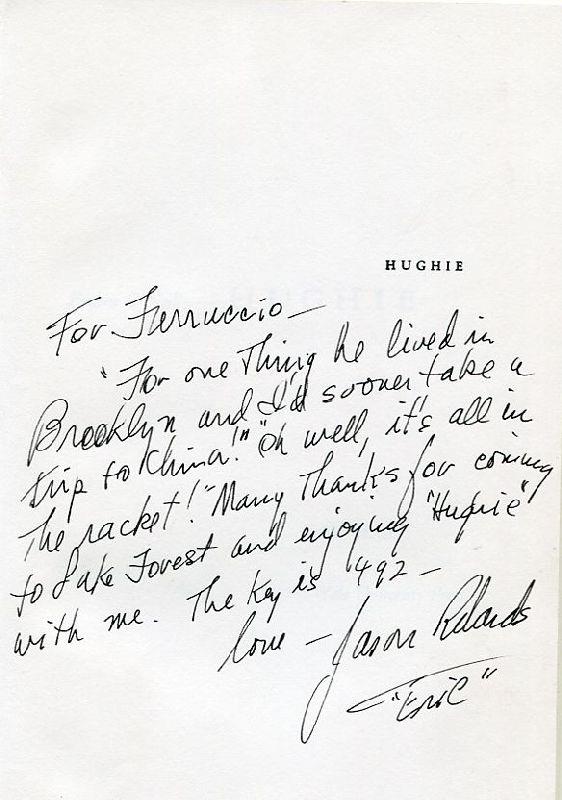 HUGHIE
For Ferruccio—
"For one Thing he lived in
Brooklyn and I'd sooner take a
trip to China!" "Oh well, it's all in
The racket!" Many Thanks for coming
to Lake Forest and enjoying "Hughie"
with me. The Key is 492—
love — Jason Robards
"Eric"